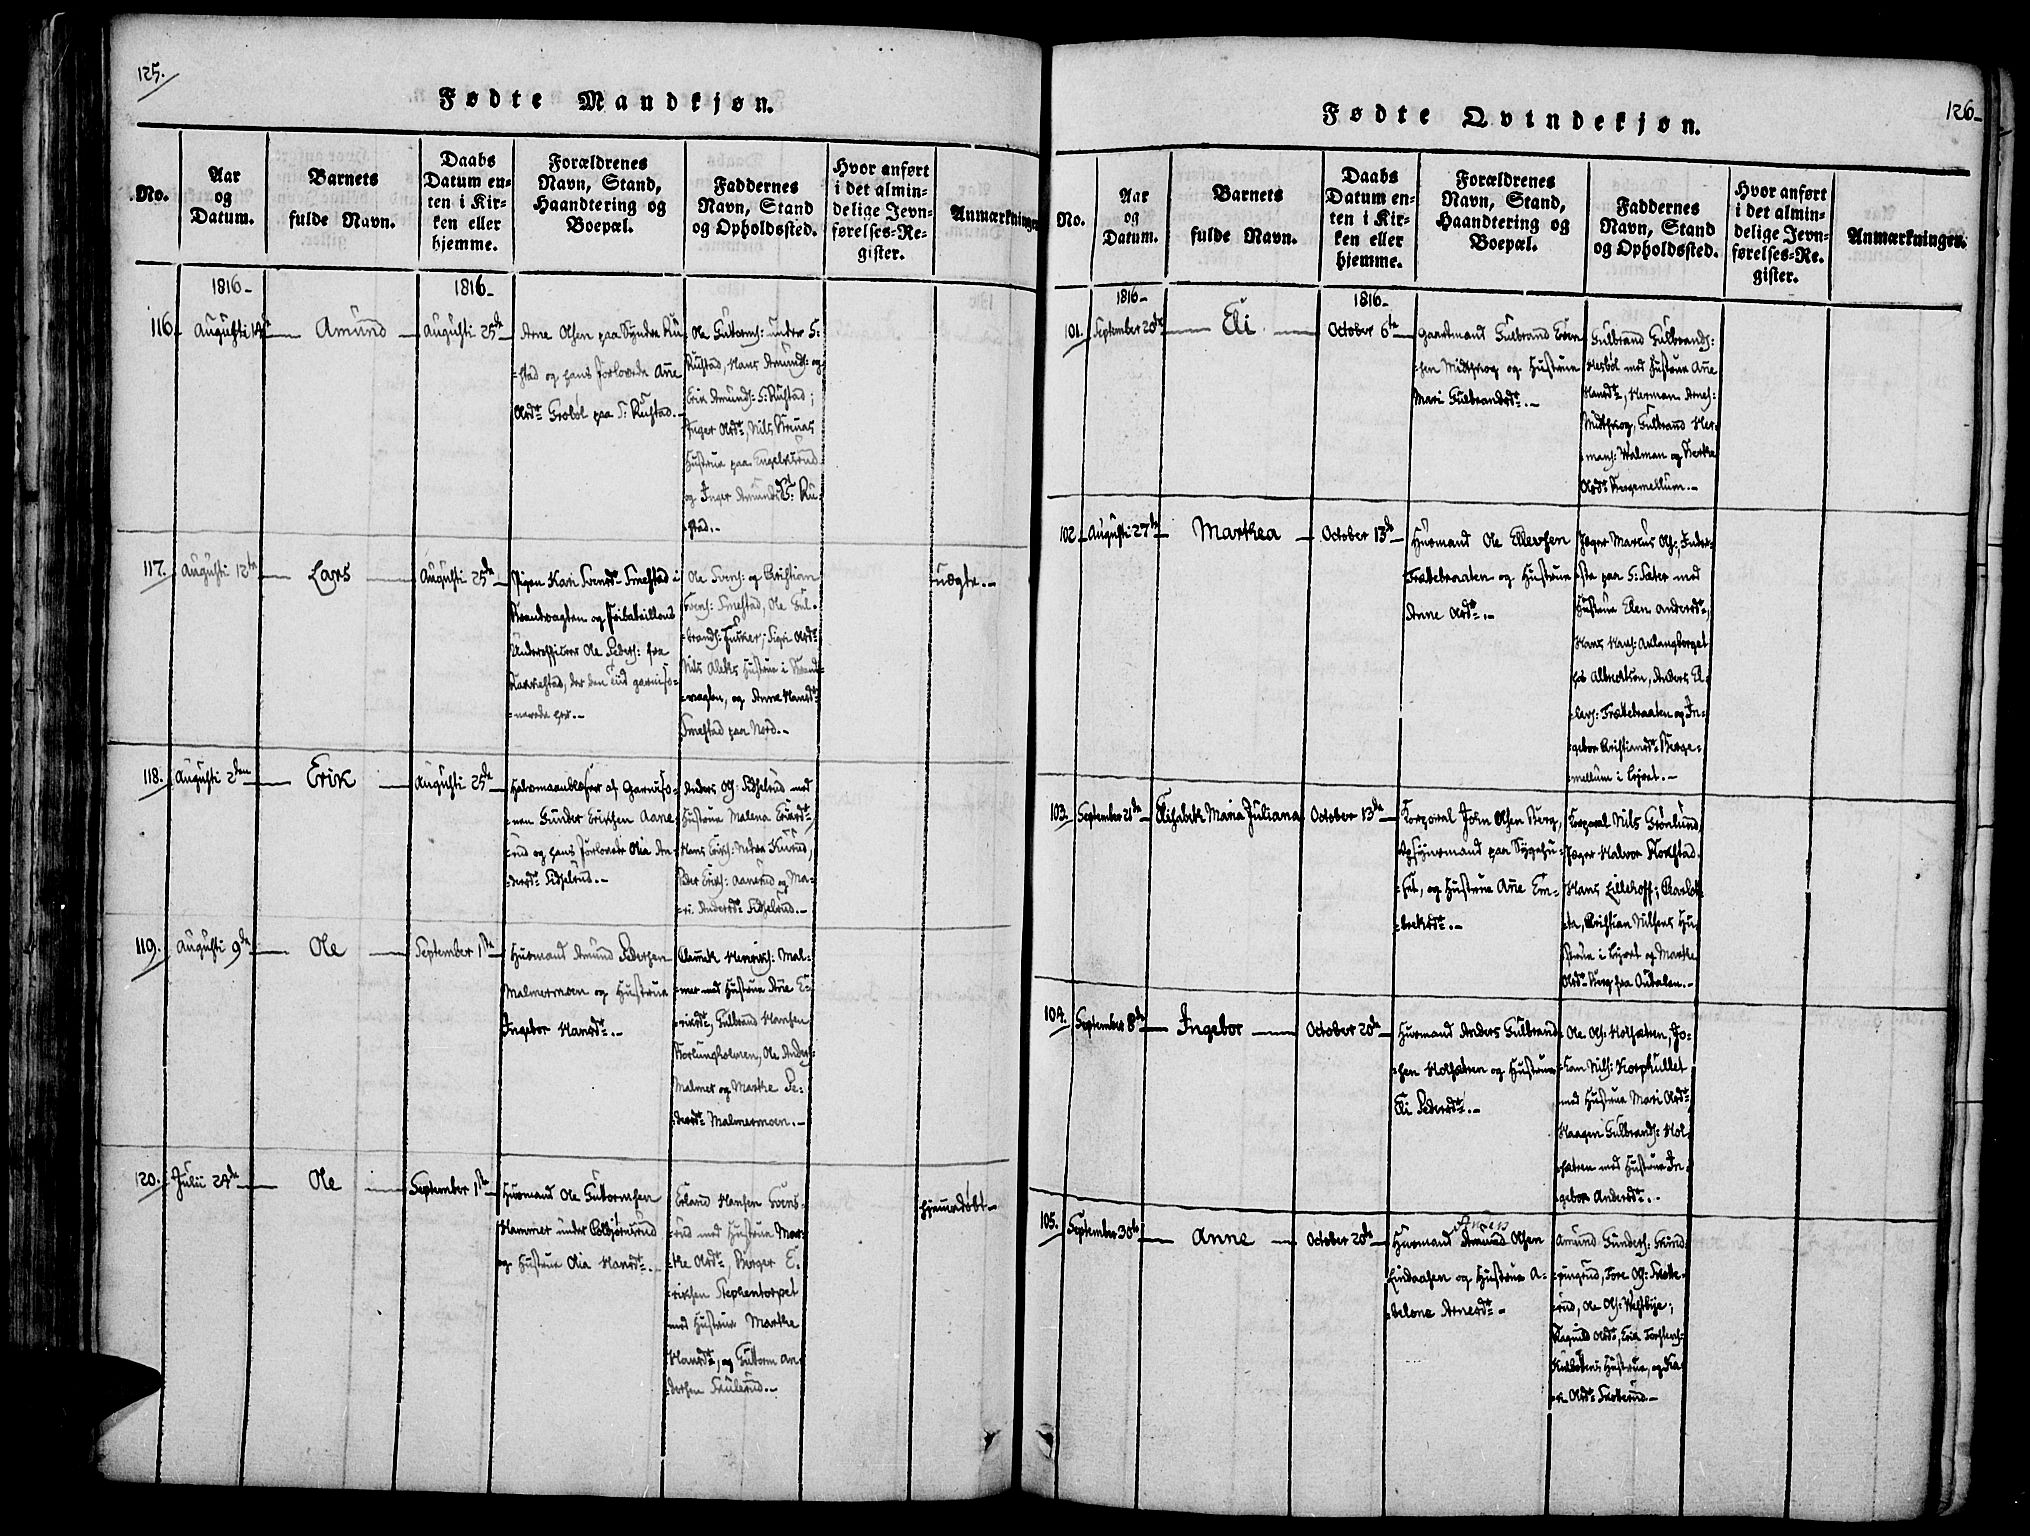 125.
Fødte Mandkjøn.
No.
Aar
og
Datum.
Barnets
fulde Navn.
Daabs
Datum en-
ten i Kir-
ken eller
hjemme.
Forældrenes
Navn, Stand,
Haandtering og
Boepæl.
Faddernes
Navn, Stand
og Opholdssted.
Hvor anført
i det almin-
delige Jevn-
førelses-Re-
gister.
Anmærkninger
1816-
1816-
116.
Augusti
Amund
Augusti 25de
Arne Olsen paa Søndre Ru-
stad og hans forlovede Ane
Olsdr Grobøl paa S: Rustad.-
Ole Guttorms: under S:
Rustad, Hans Amunds: og
Erik Amunds: S: Rustad;
Inger Olsdr, Nils
Hustrue paa
og Inger Amundsdr S: Ru-
stad.-
117.
Augusti 12te
Lars
Augusti 25de
Pigen Kari Svensdr Smestad i
Strandvagten og Fribataillons
Underofficeer Ole Peders: fra
der den tiid garniso-
nerede her.-
Ole Svens: og Kristian
Svens: Smestad, Ole Gul-
brands: Sigri Olsdr
Nils Hustrue i Strand-
vagten, og Anne Hansdr
Smestad paa Nord.-
uægte.-
118.
Augusti 2den
Erik
Augusti 25de
Halvmaanblæser af Garniso-
nen Gunder Eriksen Aane-
rud og hans forlovede Olia An-
dersdr Sidselrud.-
Anders Ols: Sidselrud med
Hustrue Malena Eriksdr,
Hans Eriks: Nedre
Peder Eriks: Aanerud og Ma-
ri Andersdr Sidselrud.-
119.
Augusti 9de
Ole
September 1ste
Huusmand Amund Pedersen
Malmermoen og Hustrue
Ingebor Hansdr.-
Henriks: Mal-
mer med Hustrue Ane E-
riksdr, Gulbrand Hansen
Ole Anders:
Malmer og Marthe Pe-
dersdr Malmermoen.-
120.
Julii 24de
Ole
September 1ste
Huusmand Ole Guttormsen
Hammer under
og Hustrue Olia Hansdr.-
Erland Hansen Svens-
rud med Hustrue Mar-
the Olsdr, Børger E-
riksen Stephentorpet
med Hustrue Marthe
Hansdr, og Guttorm An-
dersen Skulerud.-
hjemmedøbt-
126-
Fødte Qvindekjøn.
No.
Aar
og
Datum.
Barnets
fulde Navn.
Daabs
Datum en-
ten i Kir-
ken eller
hjemme.
Forældrenes
Navn, Stand,
Haandtering og
Boepæl.
Faddernes
Navn, Stand
og Opholdssted.
Hvor anført
i det almin-
delige Jevn-
førelses-Re-
gister.
Anmærkninger.
1816-
1816-
101.
September 20de
Eli
October 6te
Gaardmand Gulbrand Even-
sen Midtskog og Hustrue
Mari Gulbrandsdr.-
Gulbrand Gulbrands:
Hesbøl med Hustrue Ane
Hansdr, Herman Arnes:
Midtskog, Gulbrand Her-
mans: Walman og Marthe
Olsdr Bergemellum.-
102.
Augusti 27de
Marthea
October 13de
Huusmand Ole Ellevsen
Frættebraaten og Hustrue
Anne Olsdr.-
Jæger Marcus Ols: Inder-
ste paa S: Sæter med
Hustrue Elen Andersdr,
Hans Hans: Anlangsberget
hos Albrectson, Anders El-
levs: Frættebraaten og In-
gebor Kristiansdr Berge-
mellum i Leiret.-
103.
September 21de
Elisabeth Maria Juliana
October 13de
Korporal John Olsen Berg,
Opsynsmand paa Sygehu-
set, og Hustrue Ane Em-
breksdr.-
Korporal Nils Grønlund,
Jæger Halvor Kokstad,
Hans Lillehoff; Charlot-
te, Christian Nilsens Hu-
strue i Leiret og Marthe
Olsdr Berg fra Oudalen.-
104.
September 8de
Ingebor
October 20de
Huusmand Anders Gulbrand-
sen Holsætren og Hustrue
Eli Pedersdr.-
Ole Ols: Holsætren, Jo-
han Nils: Korphullet
med Hustrue Mari Olsdr,
Haagen Gulbrands: Hol-
sætren med Hustrue In-
gebor Andersdr.-
105.
September 30de
Anne
October 20de
Anders
Huusmand Amund Olsen
Lindaasen og Hustrue A-
belone Arnesdr.-
Amund Gunders:
Tore Ols: Skotte-
rud, Ole Ols: Westbye;
Ragnild Olsdr, Erik Torstens:
Hustrue, og Ka-
ri Olsdr Skotterud.-